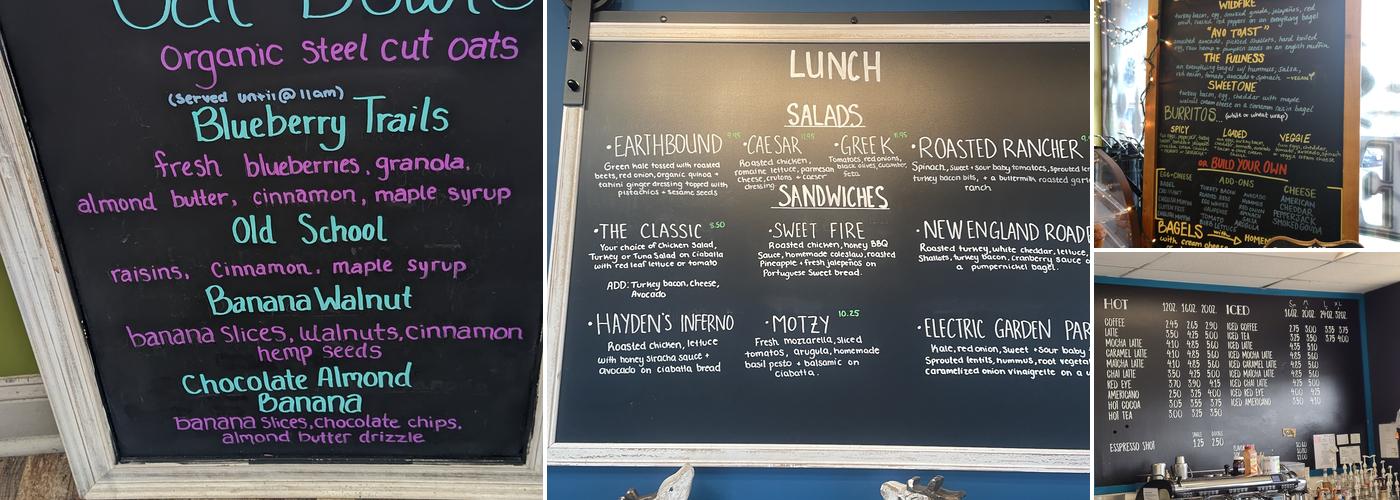 Oat Bowls
Organic Steel cut oats
(Served until @ 11am)
Blueberry Trails
fresh blueberries, granola,
almond butter, cinnamon, maple syrup
Old School
raisins, Cinnamon, maple syrup
Banana Walnut
banana Slices, walnuts, cinnamon
hemp seeds
Chocolate Almond
Banana
banana Slices, chocolate chips,
almond butter drizzle
LUNCH
SALADS
•EARTHBOUND 9.95
Green kale tossed with roasted
beets, red onion, organic quinoa +
tahini ginger dressing topped with
pistachios + Sesame seeds
•CAESAR 11.95
Roasted chicken,
romaine lettuce, parmesan
cheese, crutons + caeser
dressing
•GREEK 11.95
Tomatoes, red onions,
black olives, cucumber,
feta
•ROASTED RANCHER
Spinach, sweet + sour baby tomatoes,
turkey bacon bits, + a buttermilk roasted
ranch
SANDWICHES
•THE CLASSIC 8.50
Your choice of Chicken Salad,
Turkey or Tuna Salad on Ciabatta
with red leaf lettuce or tomato
ADD: Turkey bacon, Cheese,
Avocado
•SWEET FIRE
Roasted chicken, honey BBQ
Sauce, homemade coleslaw, roasted
Pineapple + fresh jalepeños on
Portuguese Sweet bread.
•NEW ENGLAND
Roasted turkey, white cheddar, lettuce,
Shallots, turkey bacon, cranberry sauce
a pumpernickel bagel.
•HAYDEN'S INFERNO
Roasted chicken, lettuce
with honey siracha sauce +
avocado on ciabatta bread
•MOTZY 10.25
Fresh mozzarella, sliced
tomatoes, arugula, homemade
basil pesto + balsamic on
ciabatta.
•ELECTRIC GARDEN
Kale, red onion, Sweet + sour baby
Sprouted lentils, hummus, root
caramelized onion vinaigrette on a
WILDFIRE
turkey bacon, egg, smoked gouda, jalapeños, red
"AVO TOAST"
smashed avocado, pickled shallots, hard boiled
egg, raw hemp + pumpkin seeds on an english muffin
THE FULLNESS
an everything bagel w/ hummus, salsa,
red onion, tomato, avocado + spinach -VEGAN
SWEETONE
turkey bacon, egg, cheddar with maple
walnut cream cheese on a cinnamon raisin bagel
BURRITOS... (white or wheat wrap)
SPICY
LOADED
VEGGIE
or BUILD YOUR OWN
EGG+CHEESE
BAGEL
ADD-ONS
TURKEY BACON
AVOCADO
TOMATO
CHEESE
AMERICAN
CHEDDAR
PEPPERJACK
SMOKED GOUDA
BAGELS with
with cream cheese
HOT 12OZ. 16OZ. 20OZ.
COFFEE 2.45 2.65 2.90
LATTE 3.50 4.25 5.00
MOCHA LATTE 4.10 4.85 5.60
CARAMEL LATTE 4.10 4.85 5.60
MATCHA LATTE 4.10 4.85 5.60
CHAI LATTE 3.50 4.25 5.00
RED EYE 3.70 3.90 4.15
AMERICANO 2.50 3.25 4.00
HOT COCOA 3.05 3.55 3.75
HOT TEA 3.00 3.25 3.50
ESSPRESSO SHOT
SINGLE DOUBLE
1.25 2.50
ICED
ICED COFFEE 2.75 3.00 3.35 3.75
ICED TEA 3.25 3.50 3.75 4.00
ICED LATTE 4.35 5.10
ICED MOCHA LATTE 4.85 5.60
ICED CARAMEL LATTE 4.85 5.60
ICED MATCHA LATTE 4.85 5.60
ICED CHAI LATTE 4.25 5.00
ICED RED EYE 4.00 4.25
ICED AMERICANO 3.50 4.10